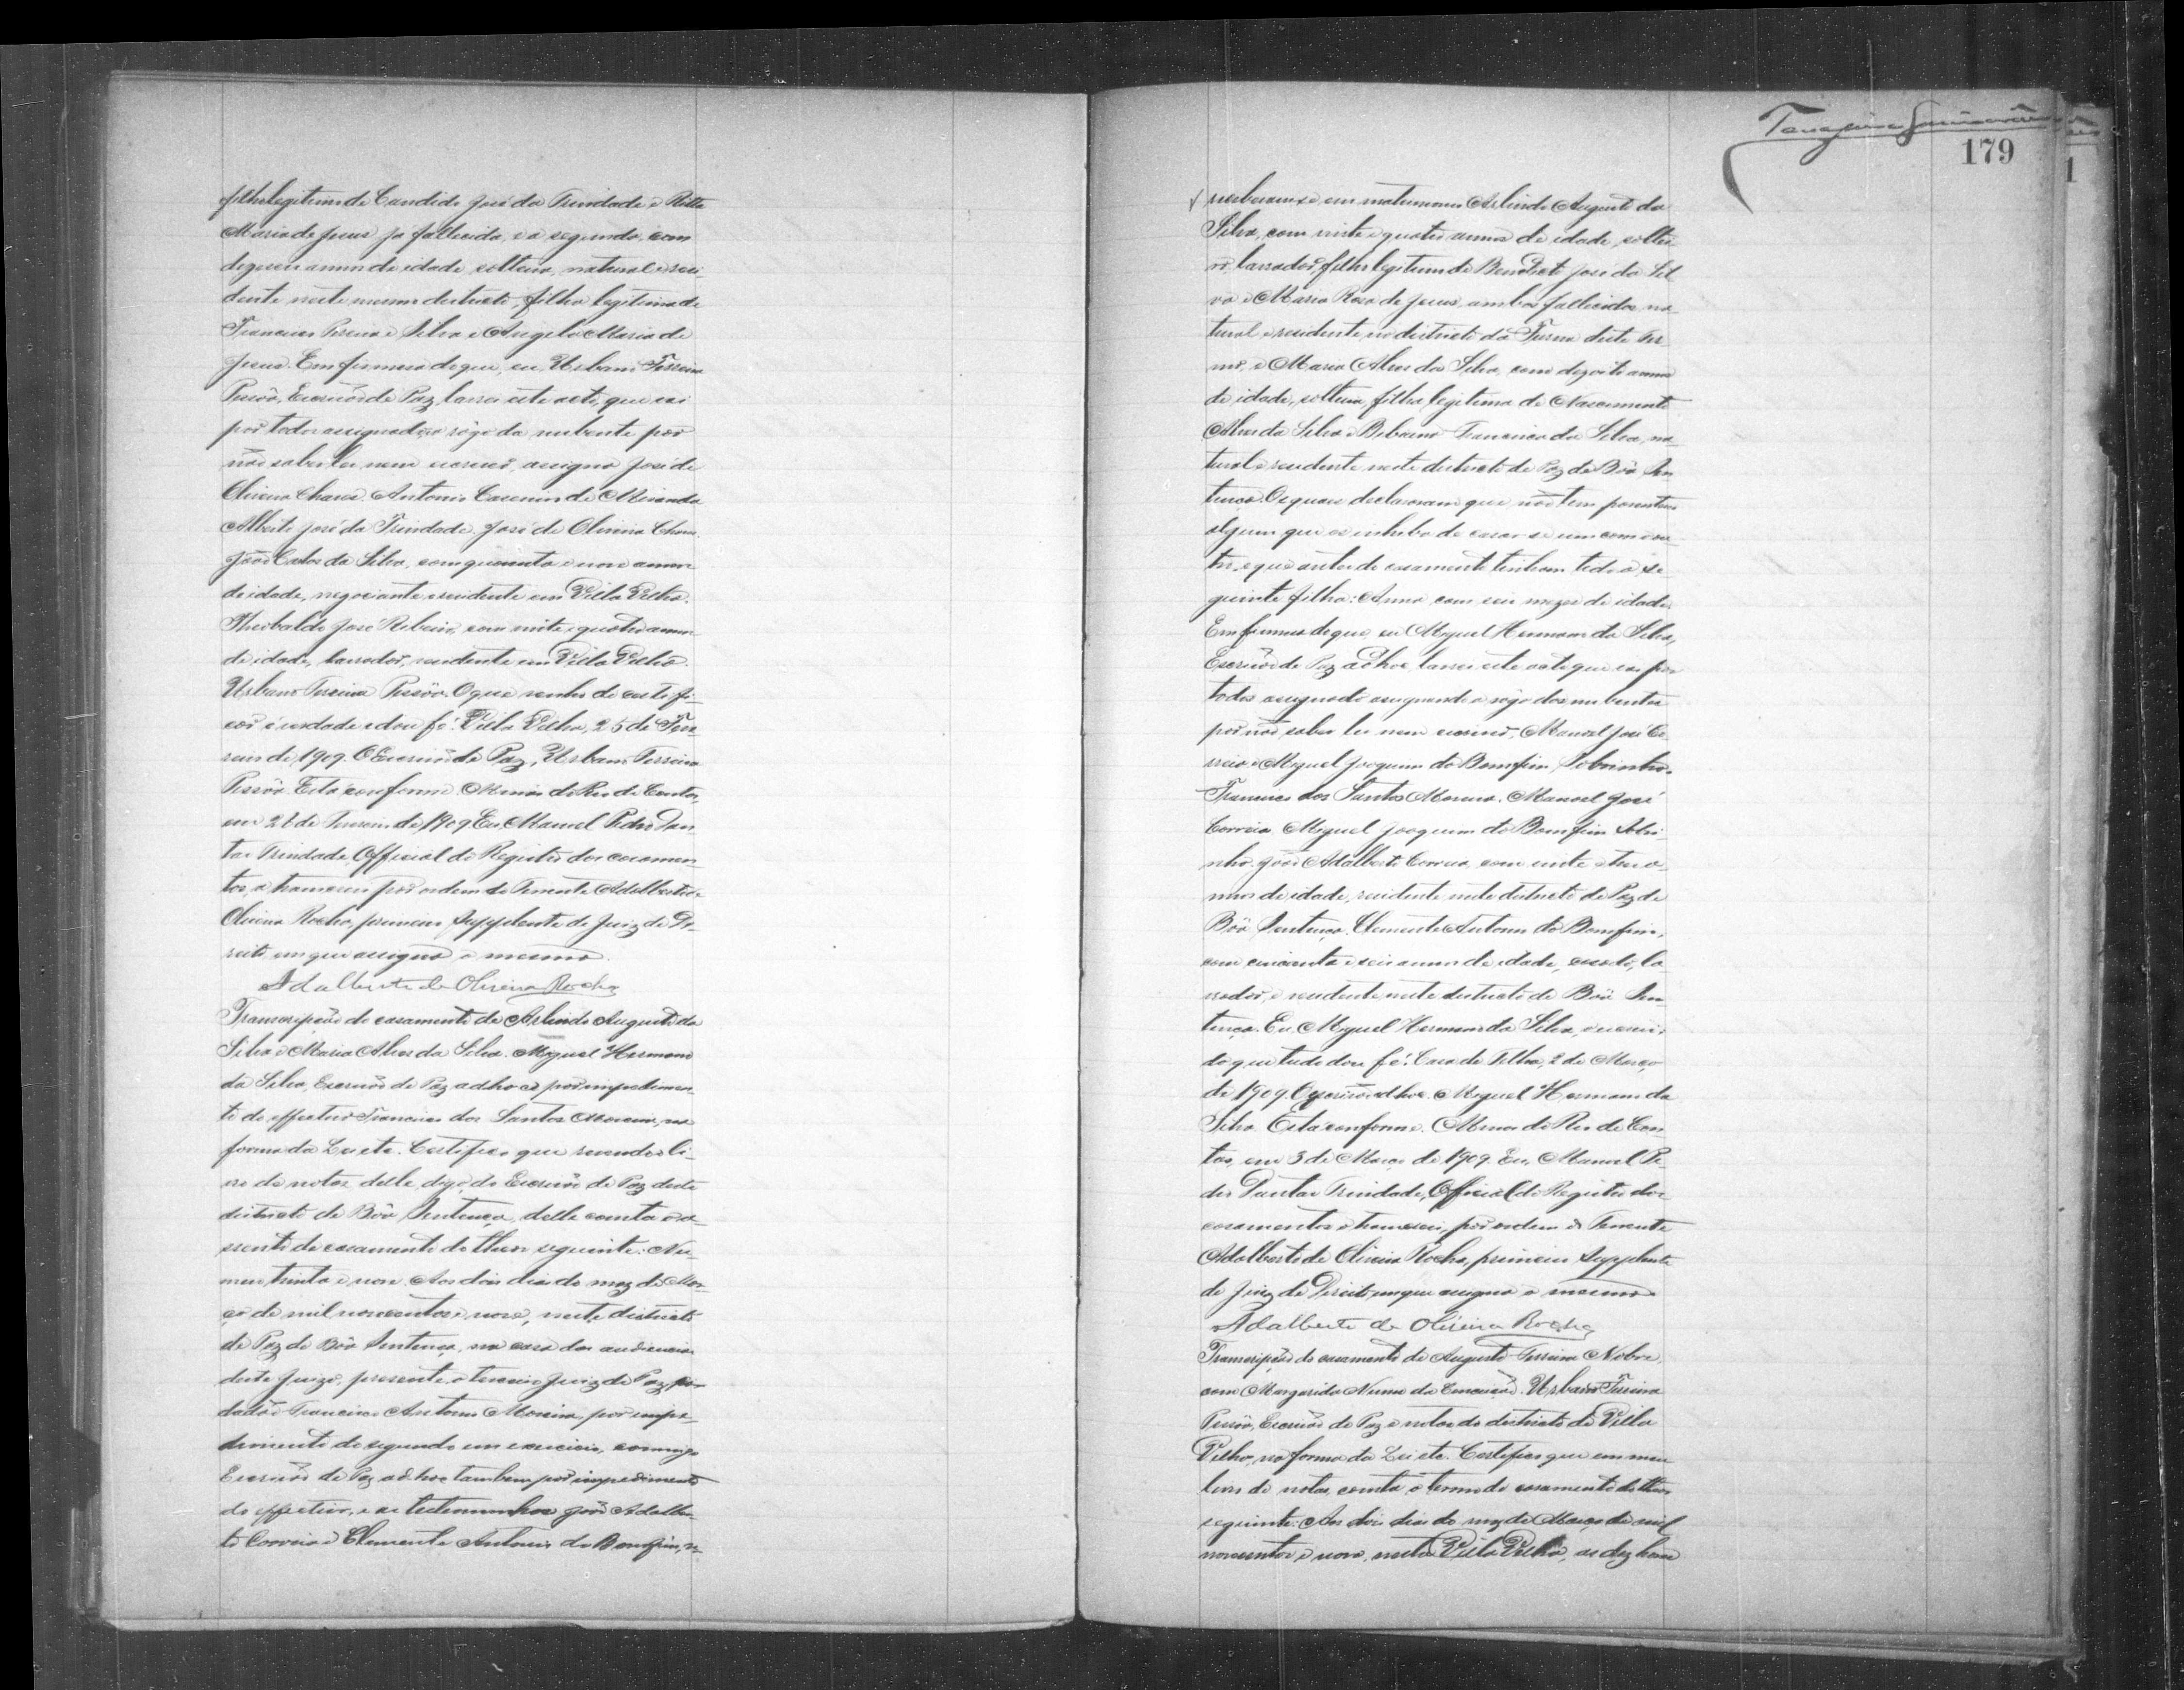 filho legitimo de Candido José da Trindade e Ritta
Maria de Jesus ja fallecida, e a segunda com
dezeseis annos de idade solteira, natural e resi
dente neste mesmo districto, filha legitima de
Francisco Pereira e Silva e Angela Maria de
Jesus. Em firmesa do que, eu Urbano Ferreira
Pessôa, Escrivão de Paz, lavrei este acto, que vai
por todos assignado, a rôgo da nubente por
não saber ler nem escrever, assigna José de
Oliveira Chaves. Antonio Cassimiro de Miranda
Alberto José da Trindade. José de Oliveira Chaves.
João Carlos da Silva, com quarenta e nove annos
de idade, negociante, residente em Villa Velha.
Theobaldo José Ribeiro, com vinte e quatro annos
de idade, lavrador, residente em Villa Velha.
Urbano Ferreira Pessôa. O que venho de certifi-
car é verdade e dou fé. Villa Velha, 25 de Feve
reiro de 1909. O Escrivão de Paz, Urbano Ferreira
Pessôa. Está conforme. Minas do Rio de Contas,
em 26 de Fevereiro de 1909 Eu, Manoel Pedro Dan
tas Trindade, Official do Registro dos casamen
tos, o transcrevi por ordem do Tenente Adalberto de
Oliveira Rocha, primeiro Supplente do Juiz de Di-
reito em que assigna o mesmo.
Adalberto de Oliveira Rocha
Transcripção do casamento de Arlindo Augusto da
Silva e Maria Alves da Silva. Miguel Hermano
da Silva, Escrivão de Paz ad hoc por impedimen-
to do effectivo Francisco dos Santos Moreira, na
forma da Lei etc. Certifico que revendo o li-
vro de notas delle, digo, do Escrivão de Paz deste
districto de Bôa Sentença, delle consta o a-
ssento de casamento do theor seguinte: Nu-
mero trinta e nove. Aos dois dias do mez de Mar-
ço de mil novecentos e nove, neste districto
de Paz de Bôa Sentença, na casa das audiencias
deste Juizo, presente o terceiro Juiz de Paz, ci-
dadão Francisco Antonio Moreira, por impe-
dimento do segundo em exercicio, commigo
Escrivão de Paz ad hoc tambem por impedimento
do effectivo, e as testemunhas João Adalber-
to Correia e Clemente Antonio do Bomfim, re-
179
ceberam-se em matrimonio Arlindo Augusto da
Silva, com vinte e quatro annos de idade, soltei-
ro, lavrador, filho legitimo de Benedicto José da Sil
va e Maria Rosa de Jesus, ambos fallecidos, na-
tural e residente no districto da Furna deste Ter-
mo, e Maria Alves da Silva, com dezoito annos
de idade, solteira, filha legitima de Nascimento
Alves da Silva e Francisca da Silva, na-
tural e residente neste districto de Paz de Bôa Sen
tença. Os quaes declararam que não tem parentesco
algum que os inhiba de casar-se um com o ou-
tro, e que antes do casamento tinham tido a se-
guinte filha: Anna com seis mezes de idade.
Em firmesa do que, eu Miguel Hermano da Silva,
Escrivão de Paz ad hoc, lavrei este acto que vai por
todos assignado assignando a rogo dos nubentes
por não saber ler nem escrever, Manoel José Co-
rreia e Miguel Joaquim do Bomfim Sobrinho.
Francisco dos Santos Moreira. Manoel José
Correia. Miguel Joaquim do Bomfim Sobri-
nho. João Adalberto Correia, com vinte e tres a-
nnos de idade, residente neste districto de Paz de
Bôa Sentença. Clemente Antonio do Bomfim,
com cincoenta e seis annos de idade, casado, la-
vrador, e residente neste districto de Bôa Sen-
tença. Eu, Miguel Hermano da Silva, escrevi.
do que tudo dou fé. Casa de Telha, 2 de Março
de 1909. O escrivão ad hoc. Miguel Hermano da
Silva. Está conforme. Minas do Rio de Con-
tas, em 3 de Março de 1909. Eu, Manoel Pe-
dro Dantas Trindade, Official do Registro dos
casamentos o transcrevi, por ordem do Tenente
Adalberto de Oliveira Rocha, primeiro Supplente
do Juiz de Direito em que assigna o mesmo
Adalberto de Oliveira Rocha
Transcripção do casamento de Augusto Ferreira Nobre
com Margarida Nunes da Conceição. Urbano Ferreira
Pessôa, Escrivão de Paz e notas do districto de Villa
Velha, na forma da Lei etc. Certifico que em meu
livro de notas, consta o termo de casamento do theor
seguinte: Aos dois dias do mez de Março de mil
novecentos e nove, nesta Villa Velha, as dez horas